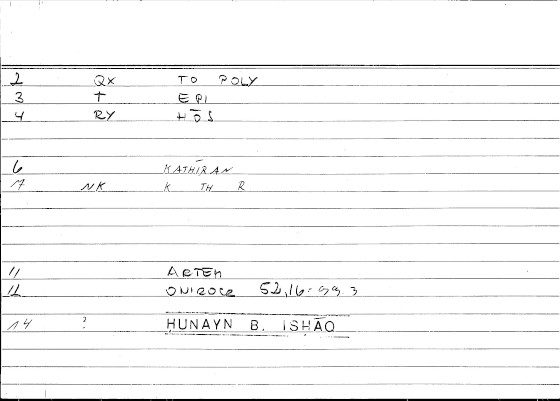 2 QX TO POLY
3 T EPI
4 RY HŌS
6 KATHĪRAN
7 NK K TH R
11 ARTEM
12 ONIROCR 52,16: 99.3
14 ? ḤUNAYN B. ISḤĀQ